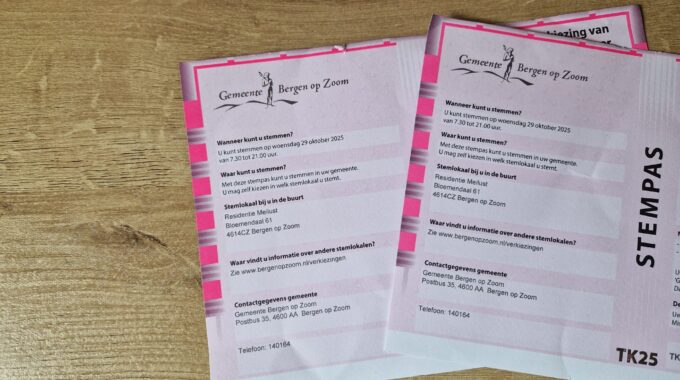 Gemeente Bergen op Zoom
Wanneer kunt u stemmen?
U kunt stemmen op woensdag 29 oktober 2025
van 7.30 tot 21.00 uur.
Waar kunt u stemmen?
Met deze stempas kunt u stemmen in uw gemeente.
U mag zelf kiezen in welk stemlokaal u stemt.
Stemlokaal bij u in de buurt
Residentie Meilust
Bloemendaal 61
4614CZ Bergen op Zoom
Waar vindt u informatie over andere stemlokalen?
Zie www.bergenopzoom.nl/verkiezingen
Contactgegevens gemeente
Gemeente Bergen op Zoom
Postbus 35, 4600 AA Bergen op Zoom
Telefoon: 140164
kiezing van
Gemeente Bergen op Zoom
Wanneer kunt u stemmen?
U kunt stemmen op woensdag 29 oktober 2025
van 7.30 tot 21.00 uur.
Waar kunt u stemmen?
Met deze stempas kunt u stemmen in uw gemeente.
U mag zelf kiezen in welk stemlokaal u stemt.
Stemlokaal bij u in de buurt
Residentie Meilust
Bloemendaal 61
4614CZ Bergen op Zoom
Waar vindt u informatie over andere stemlokalen?
Zie www.bergenopzoom.nl/verkiezingen
Contactgegevens gemeente
Gemeente Bergen op Zoom
Postbus 35, 4600 AA Bergen op Zoom
Telefoon: 140164
STEMPAS
TK25